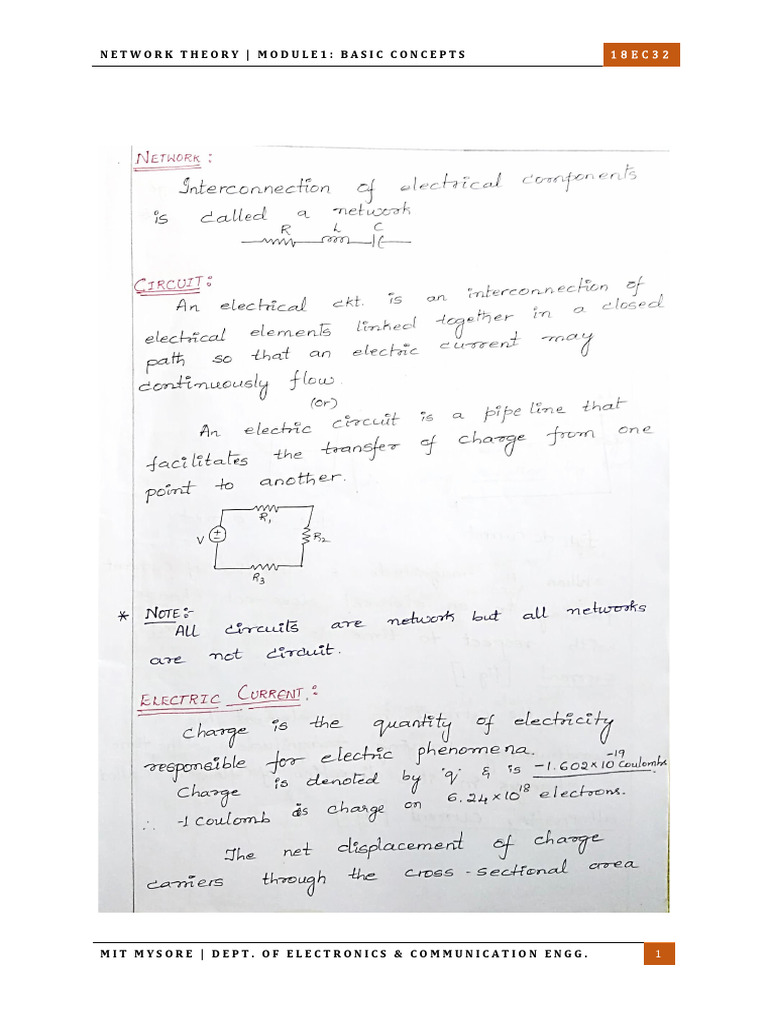 NETWORK THEORY | MODULE1: BASIC CONCEPTS
18EC32
NETWORK:
Interconnection of electrical components
is called a network
R L C
CIRCUIT:
An electrical ckt. is an interconnection of
electrical elements linked together in a closed
path so that an electric current may
continuously flow.
(or)
An electric circuit is a pipeline that
facilitates the transfer of charge from one
point to another.
R1
V R2
R3
* NOTE:-
ALL circuits are network but all networks
are not circuit.
ELECTRIC CURRENT:
Charge is the quantity of electricity
responsible for electric phenomena.
Charge is denoted by 'q' & is -1.602×10^-19 coulombs
∴ -1 coulomb is charge on 6.24×10^18 electrons.
The net displacement of charge
carriers through the cross-sectional area
MIT MYSORE | DEPT. OF ELECTRONICS & COMMUNICATION ENGG.
1